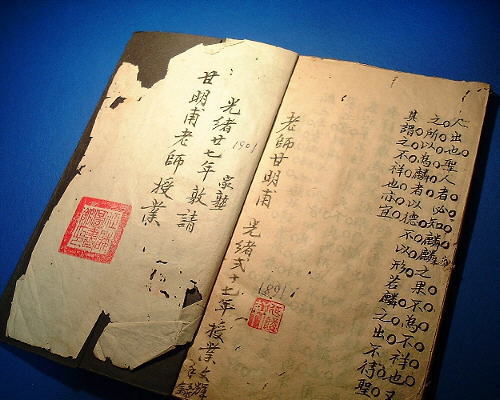 人出也聖人者必知麟麟之果不為不祥也又
之所以為麟者以德不以形若麟之出不待聖
其謂之不祥也亦宜
老師甘明甫 光緒弍十七年授業
1901
光緒廿七年 家塾 敦請
1901
甘明甫老師授業